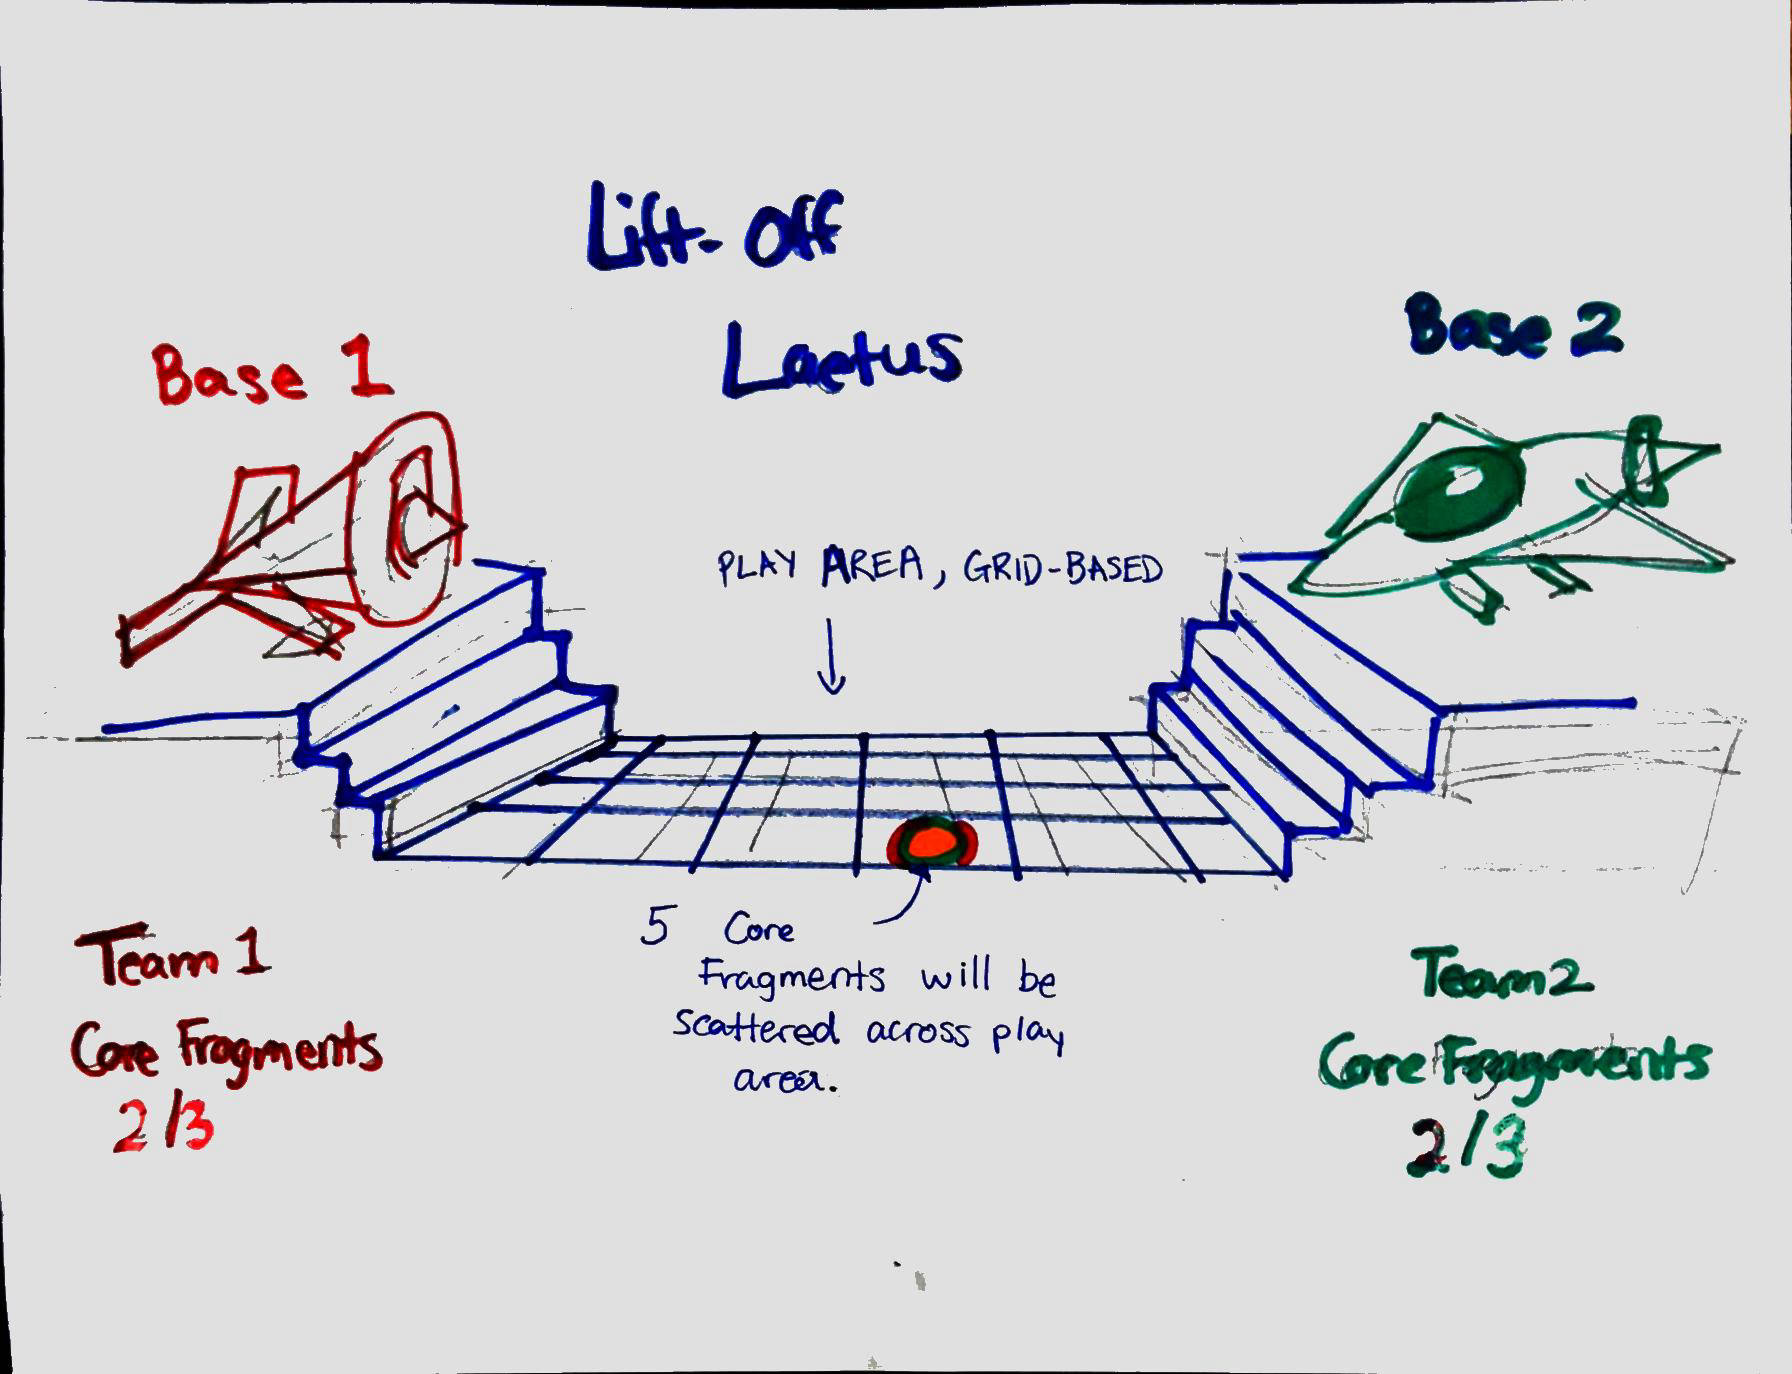 Lift-Off
Laetus
Base 1
Base 2
PLAY AREA, GRID-BASED
5 Core
Fragments will be
scattered across play
area.
Team 1
Core Fragments
2/3
Team 2
Core Fragments
2/3